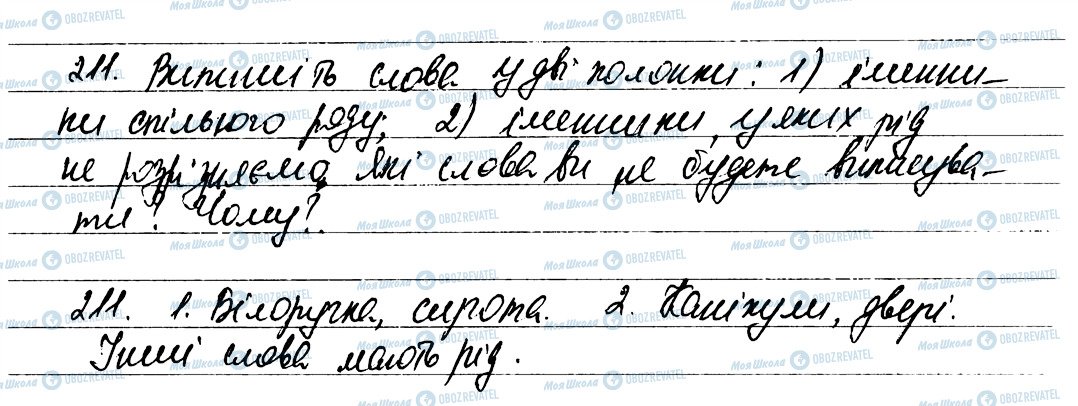 211. Випишіть слова у дві колонки: 1) іменни-
ки спільного роду; 2) іменники, у яких рід
не розрізняємо. Які слова ви не будете виписува-
ти? Чому?
211. 1. Білоручка, сирота. 2. Канікули, двері.
Інші слова мають рід.